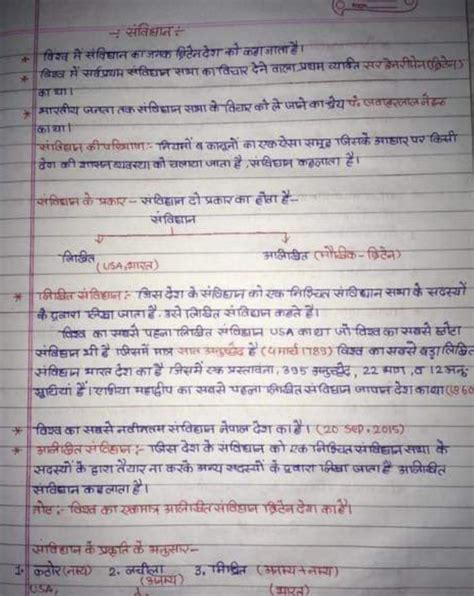 -: संविधान :-
* विश्व में संविधान का जनक ब्रिटेन देश को कहा जाता है।
* विश्व में सर्वप्रथम संविधान सभा का विचार देने वाला प्रथम व्यक्ति सर हेनरीमेन (ब्रिटेन)
का था।
* भारतीय जनता तक संविधान सभा के विचार को ले जाने का श्रेय पं. जवाहरलाल नेहरू
का था।
संविधान की परिभाषा:- नियमों व कानूनों का एक ऐसा समूह जिसके आधार पर किसी
देश की शासन व्यवस्था को चलाया जाता है, संविधान कहलाता है।
संविधान के प्रकार - संविधान दो प्रकार का होता है-
संविधान
लिखित अलिखित (मौखिक - ब्रिटेन)
(USA, भारत)
* लिखित संविधान :- जिस देश के संविधान को एक निश्चित संविधान सभा के सदस्यों
के द्वारा लिखा जाता है। उसे लिखित संविधान कहते हैं।
विश्व का सबसे पहला लिखित संविधान USA का था जो विश्व का सबसे छोटा
संविधान भी है जिसमें मात्र सात अनुच्छेद है (4 मार्च 1789) विश्व का सबसे बड़ा लिखित
संविधान भारत देश का है जिसमें एक प्रस्तावना, 395 अनुच्छेद, 22 भाग, व 12 अनु-
सूचियां हैं। एशिया महाद्वीप का सबसे पहला लिखित संविधान जापान देश का था
* विश्व का सबसे नवीनतम संविधान नेपाल देश का है। (20 Sep. 2015)
* अलिखित संविधान :- जिस देश के संविधान को एक निश्चित संविधान सभा के
सदस्यों के द्वारा तैयार ना करके अन्य सदस्यों के द्वारा लिखा जाता है अलिखित
संविधान कहलाता है।
नोट :- विश्व का एकमात्र अलिखित संविधान ब्रिटेन देश का है।
संविधान के प्रकृति के अनुसार-
1. कठोर (नम्य) 2. लचीला 3. मिश्रित (अनम्य + नम्य)
(अनम्य) (भारत)
USA,